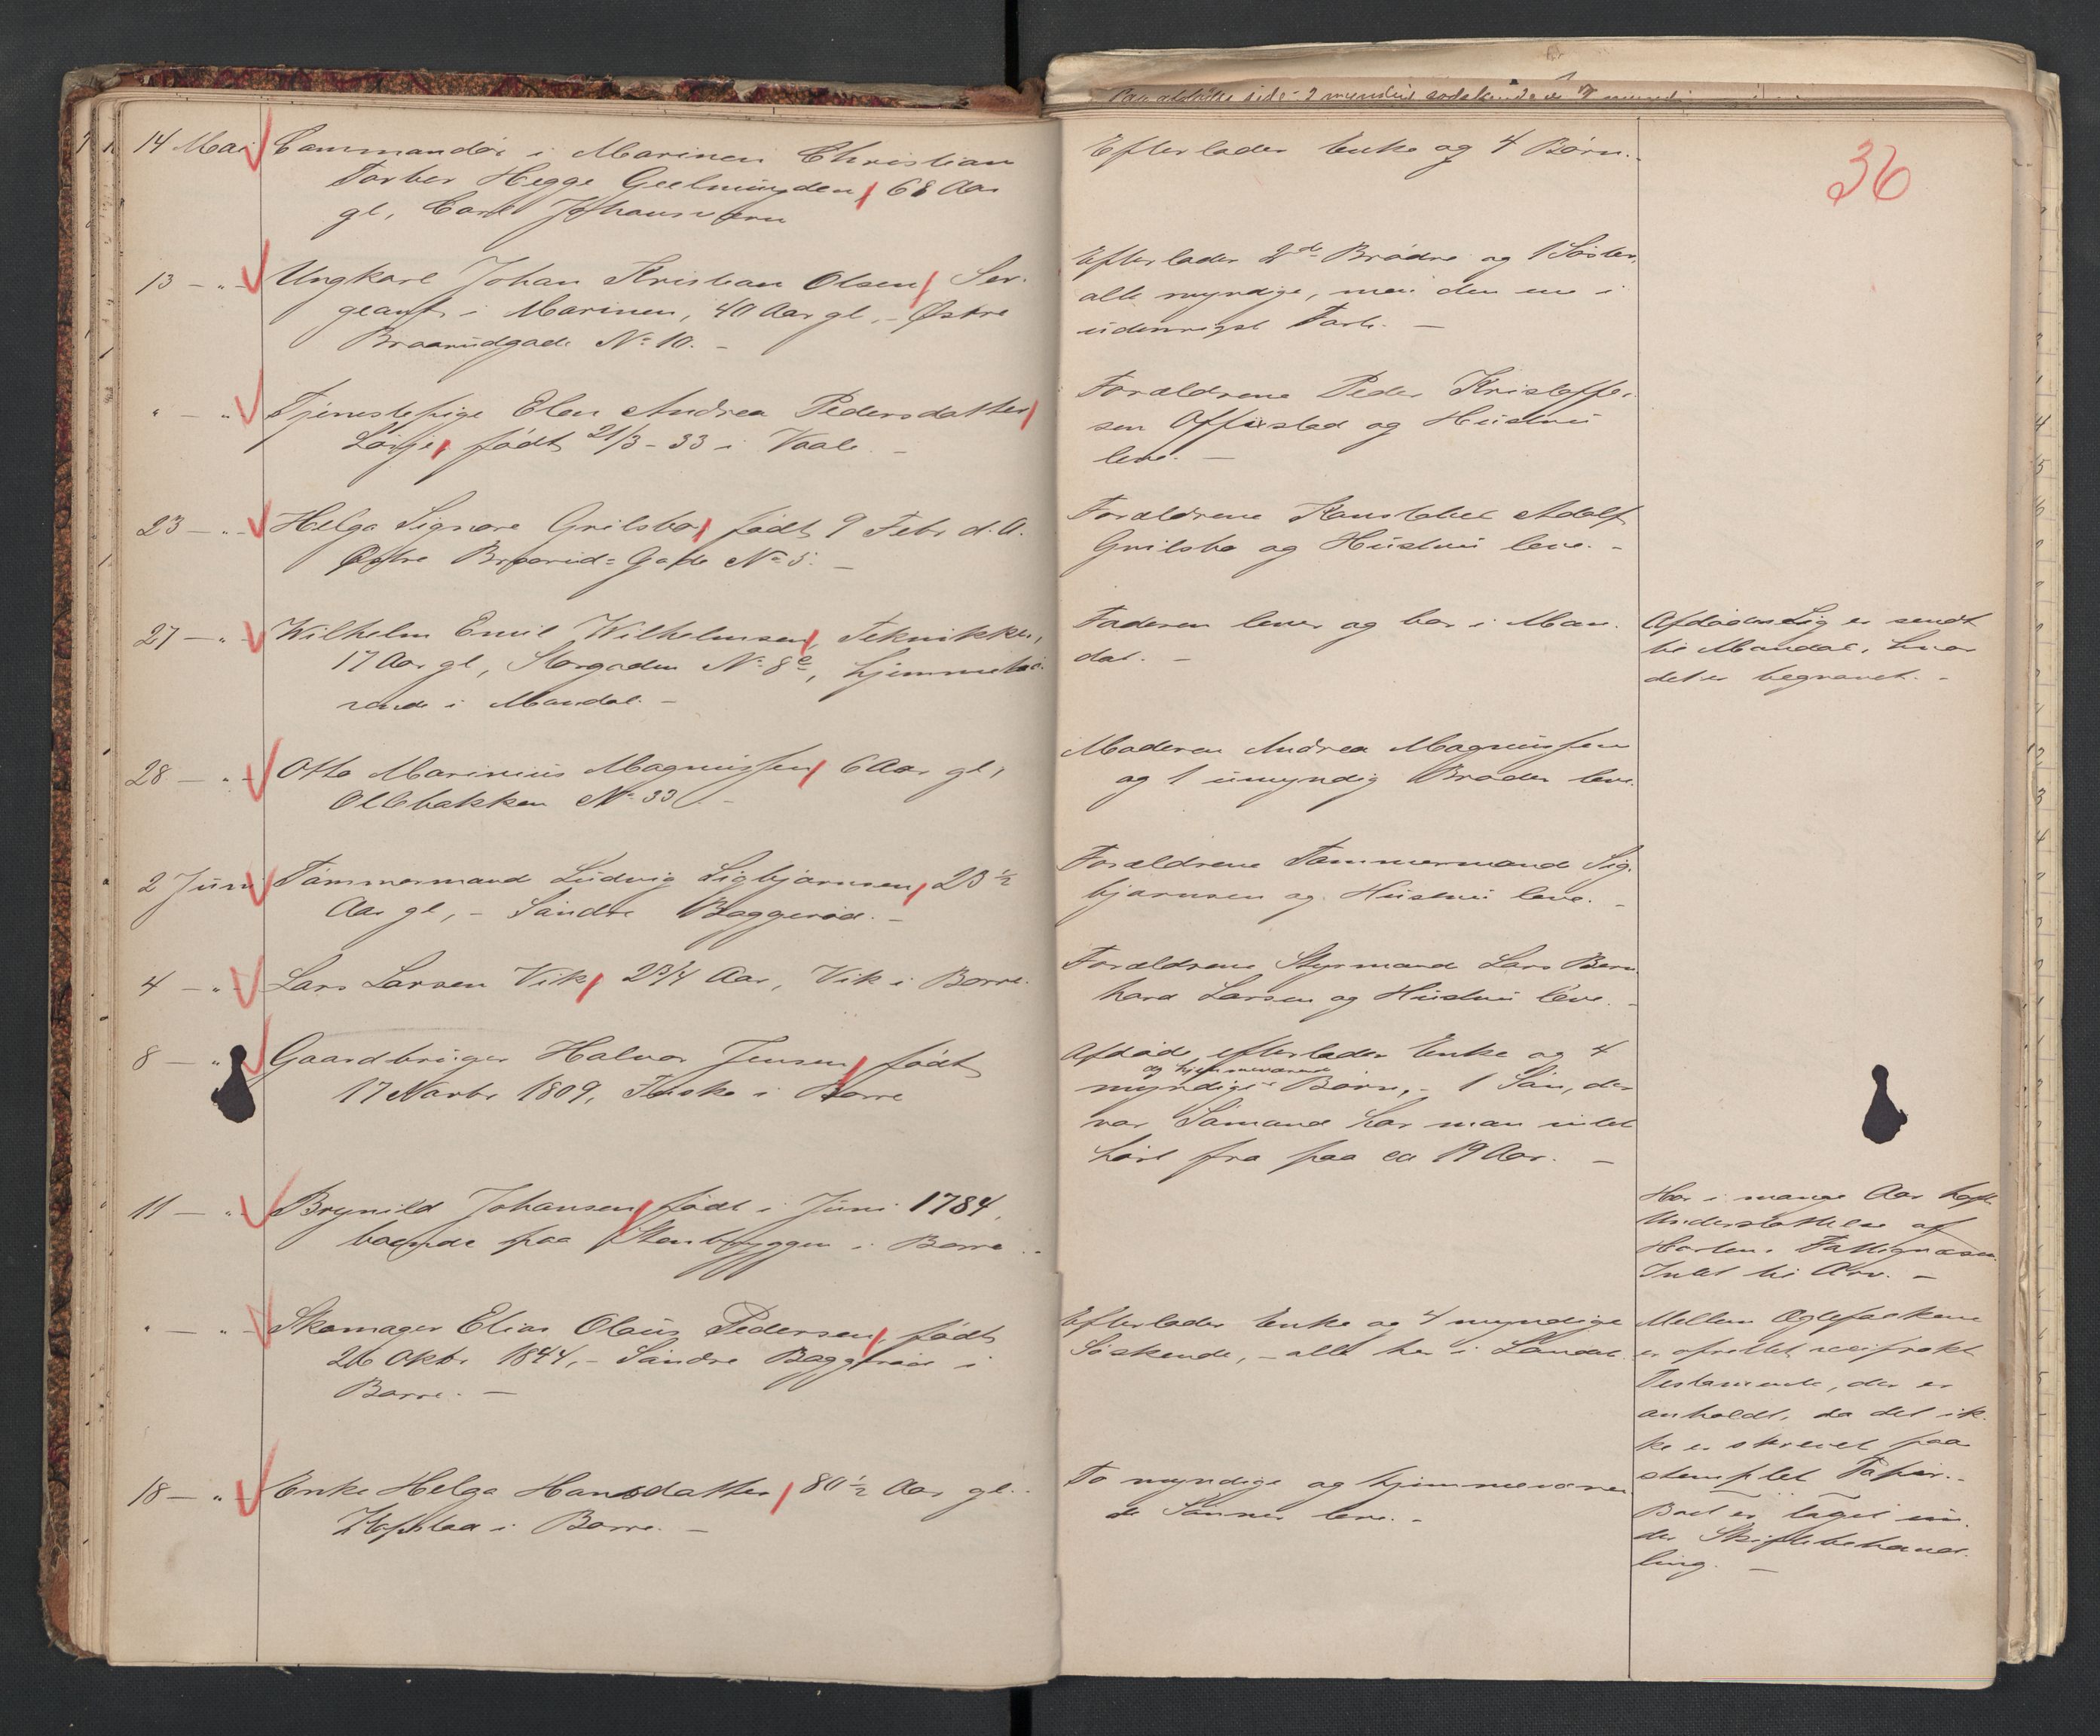 36
14 Mai Commandør i Marinen Christian
Torber Hegge Geelmuyden, 68 Aar
gl, Carl Johansværn
Efterlader Enke og 4 Børn.
13 - " - Ungkarl Johan Kristian Olsen, Ser-
geant i Marinen, 40 Aar gl, - Østre
Braarudgade No 10. -
Efterlader 2de Brødre og 1 Søster,
alle myndige, men den ene i
udenrigsk Fart. -
" - " - Tjenestepige Elen Andrea Pedersdatter
født 21/3 - 33 i Vaale. -
Forældrene Peder Kristoffer-
sen og Hustru
leve. -
23 - " - Helga Signore Grilsbo, født 9 Febr d.A.
Østre Braarud-Gade No 5. -
Forældrene Konstabel Adolf
Grilsbo og Hustru leve. -
27 - " - Wilhelm Emil Wilhelmsen, Teknikker,
17 Aar gl, Storgaden No 8e, hjemmehø-
rende i Mandal. -
Faderen lever og bor i Man-
dal. -
Afdødes Lig er sendt
til Mandal, hvor
det er begravet. -
28 - " - Otto Marinius Magnussen, 6 Aar gl,
Ollebakken No 33. -
Moderen Andrea Magnussen
og 1 umyndig Broder leve.
2 Juni Tømmermand Ludvig Sigbjørnsen, 23 1/2
Aar gl, - Søndre Baggerød. -
Forældrene Tømmermand Sig-
bjørnsen og Hustru leve. -
4 - " - Lars Larsen Vik, 2 3/4 Aar, Vik i Borre.
Forældrene Styrmand Lars Bern-
hard Larsen og Hustru leve. -
8 - " - Gaardbruger Halvor Jensen, født
17 Novbr 1809, i Borre
Afdøde efterlader Enke og 4
og hjemmeværende
myndige Børn, - 1 Søn, der
var Sømand har man intet
hørt fra paa ca 19 Aar. -
11 - " - Brynild Johansen, født i Juni 1784,
boende paa Stenbryggen i Borre. -
Har i mange Aar havt
Understøttelse af
Hortens Fattigvæsen.
Intet til Arv. -
" - " - Skomager Elias Olaus Pedersen, født
26 Oktbr 1844, - Søndre Baggerød i
Borre. -
Efterlader Enke og 4 myndige
Søskende, - alle her i Landet.
Mellem Ægtefolkene
er oprettet
Testamente, der er
anholdt, da det ik-
ke er skrevet paa
stemplet Papir. -
Boet er taget un-
der Skiftebehand-
ling. -
18 - " - Enke Helga Hansdatter, 80 1/2 Aar gl. -
i Borre. -
To myndige og hjemmeværen-
de Sønner leve. -